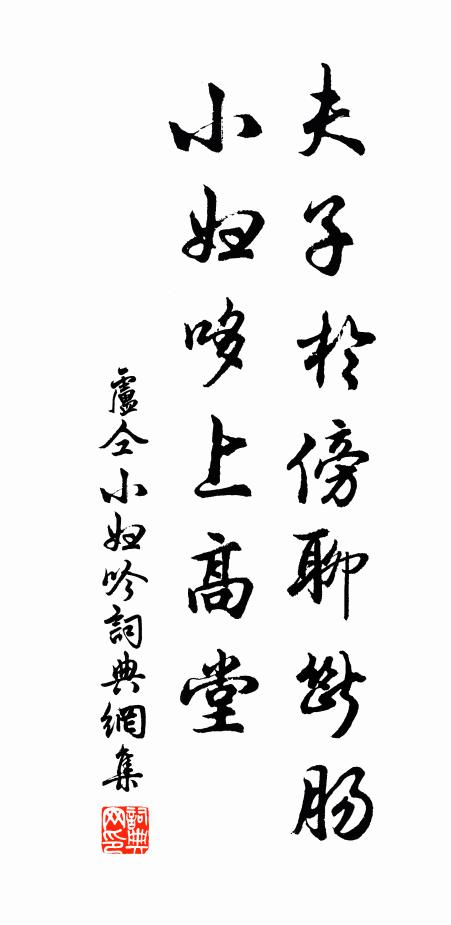 夫子於傍聊斷腸
小婦哆上高堂
盧仝小婦吟詞典網集
詞典网印